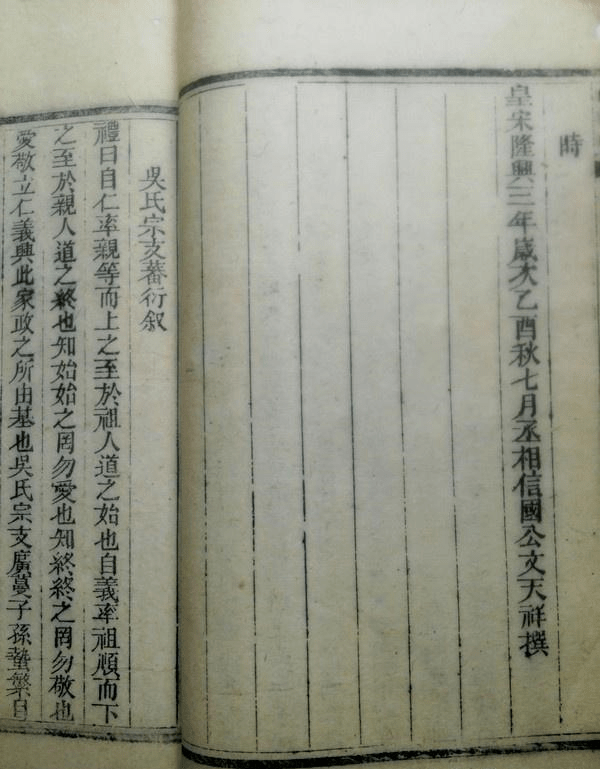 時
皇宋隆興三年歲次乙酉秋七月丞相信國公文天祥撰
吳氏宗支蕃衍叙
禮曰自仁率親等而上之至於祖人道之始也自義率祖順而下
之至於親人道之終也知始始之罔勿愛也知終終之罔勿敬也
愛敬立仁義興此家政之所由基也吳氏宗支廣蔓子孫蟄繁日